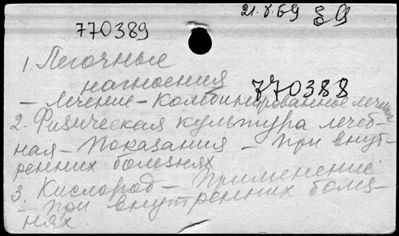 770389
21.8.69
1. Легочные
нагноения
770388
— лечение — комбинированное лечение
2. Физическая культура лечеб-
ная — Показания — при внут-
ренних болезнях
3. Кислород — Применение
— при внутренних болез-
нях.